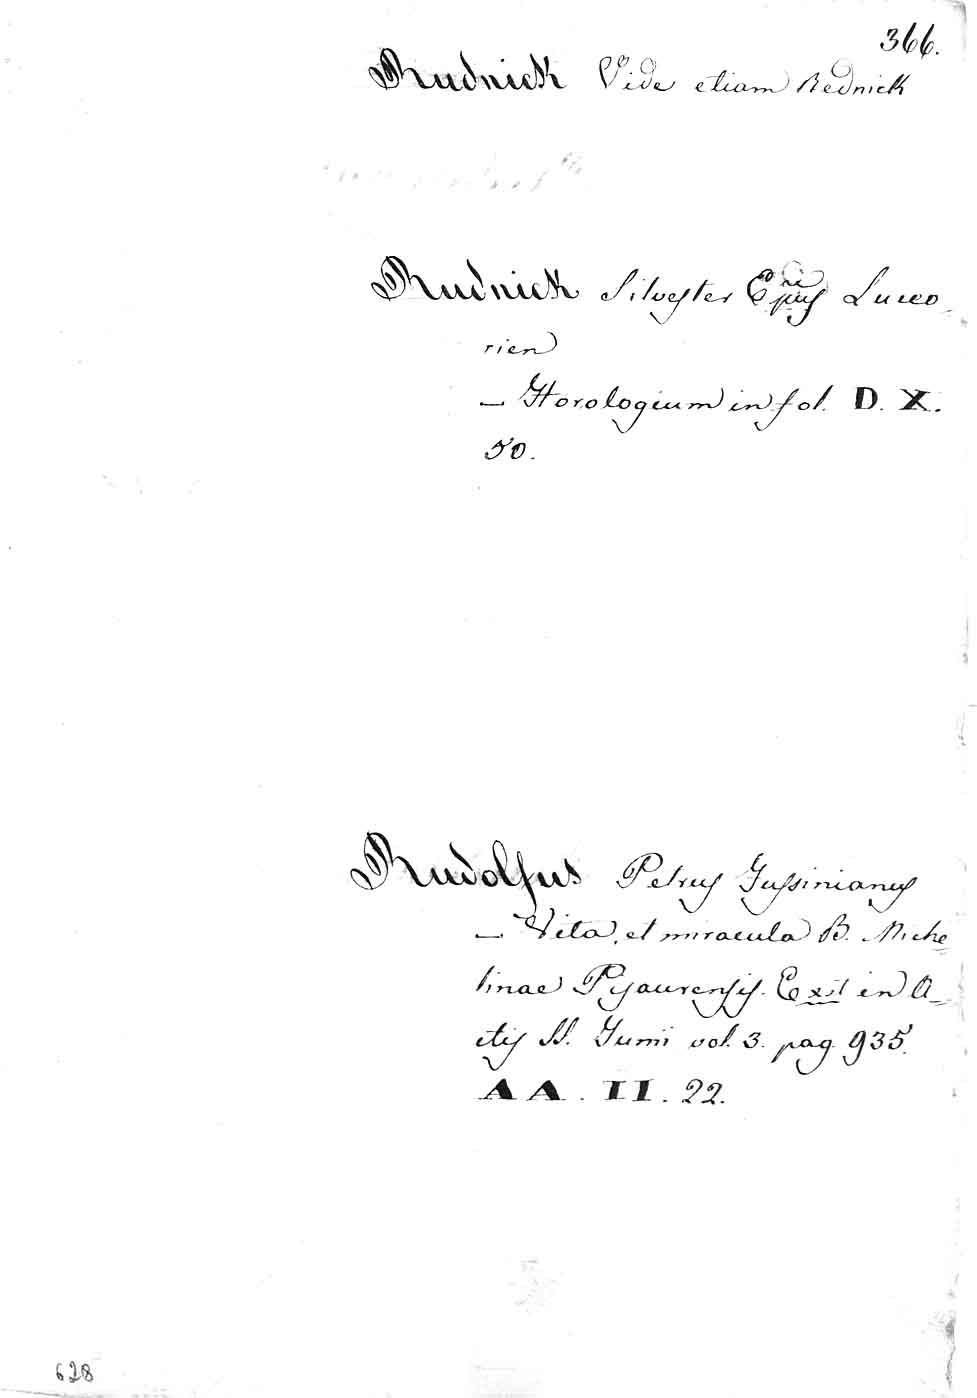 366.
Rudnick Vide etiam Rednick
Rudnick Silvester Epus Luceo-
rien
— Horologium in fol. D. X.
50.
Rudolfus Petrus Jussinianus
— Vita, et miracula B. Miche=
linae Pisaurensis. Exit in A=
ctis SS. Junii vol. 3. pag. 935.
AA. II. 22.
628